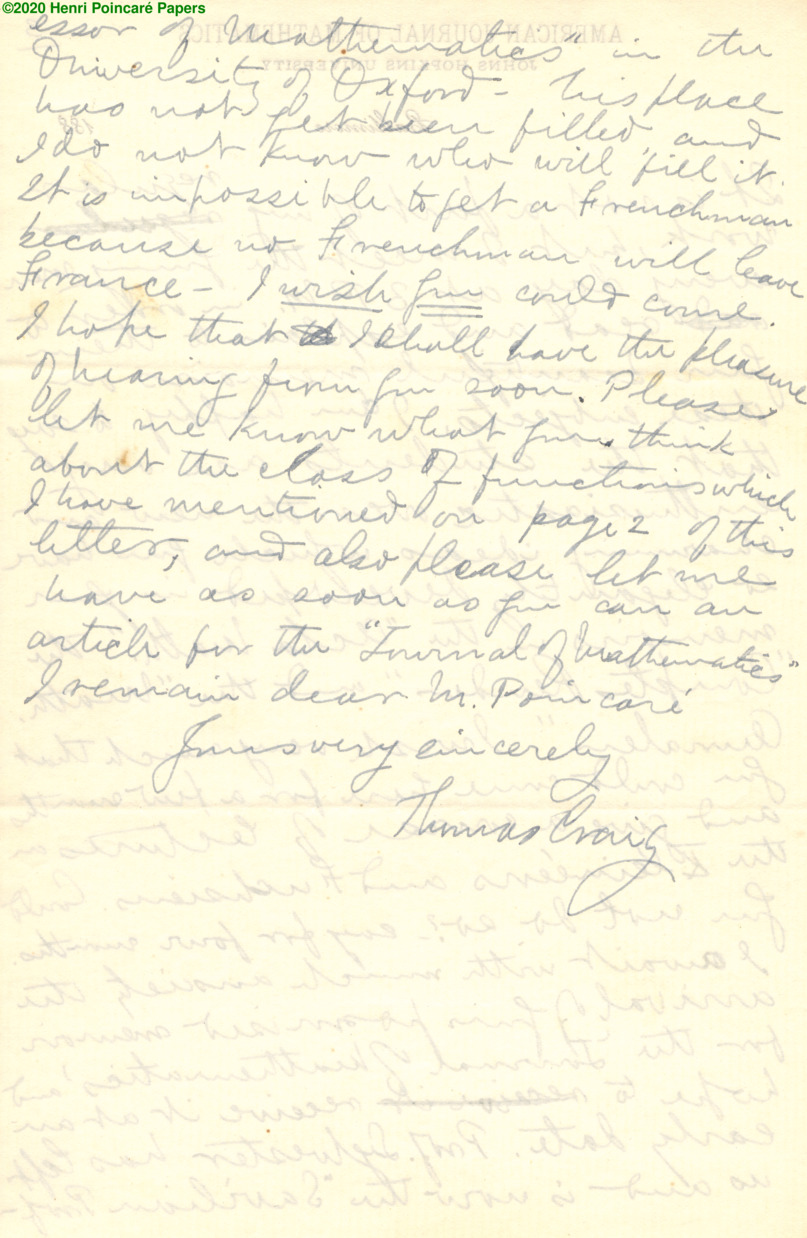 ©2020 Henri Poincaré Papers
essor of Mathematics" in the
University of Oxford – his place
has not yet been filled, and
I do not know who will fill it.
It is impossible to get a Frenchman
because no Frenchman will leave
France – I wish you could come.
I hope that I shall have the pleasure
of hearing from you soon. Please
let me know what you think
about the class of functions which
I have mentioned on page 2 of this
letter, and also please let me
have as soon as you can an
article for the "Journal of Mathematics"
I remain dear M. Poincaré
Yours very sincerely
Thomas Craig